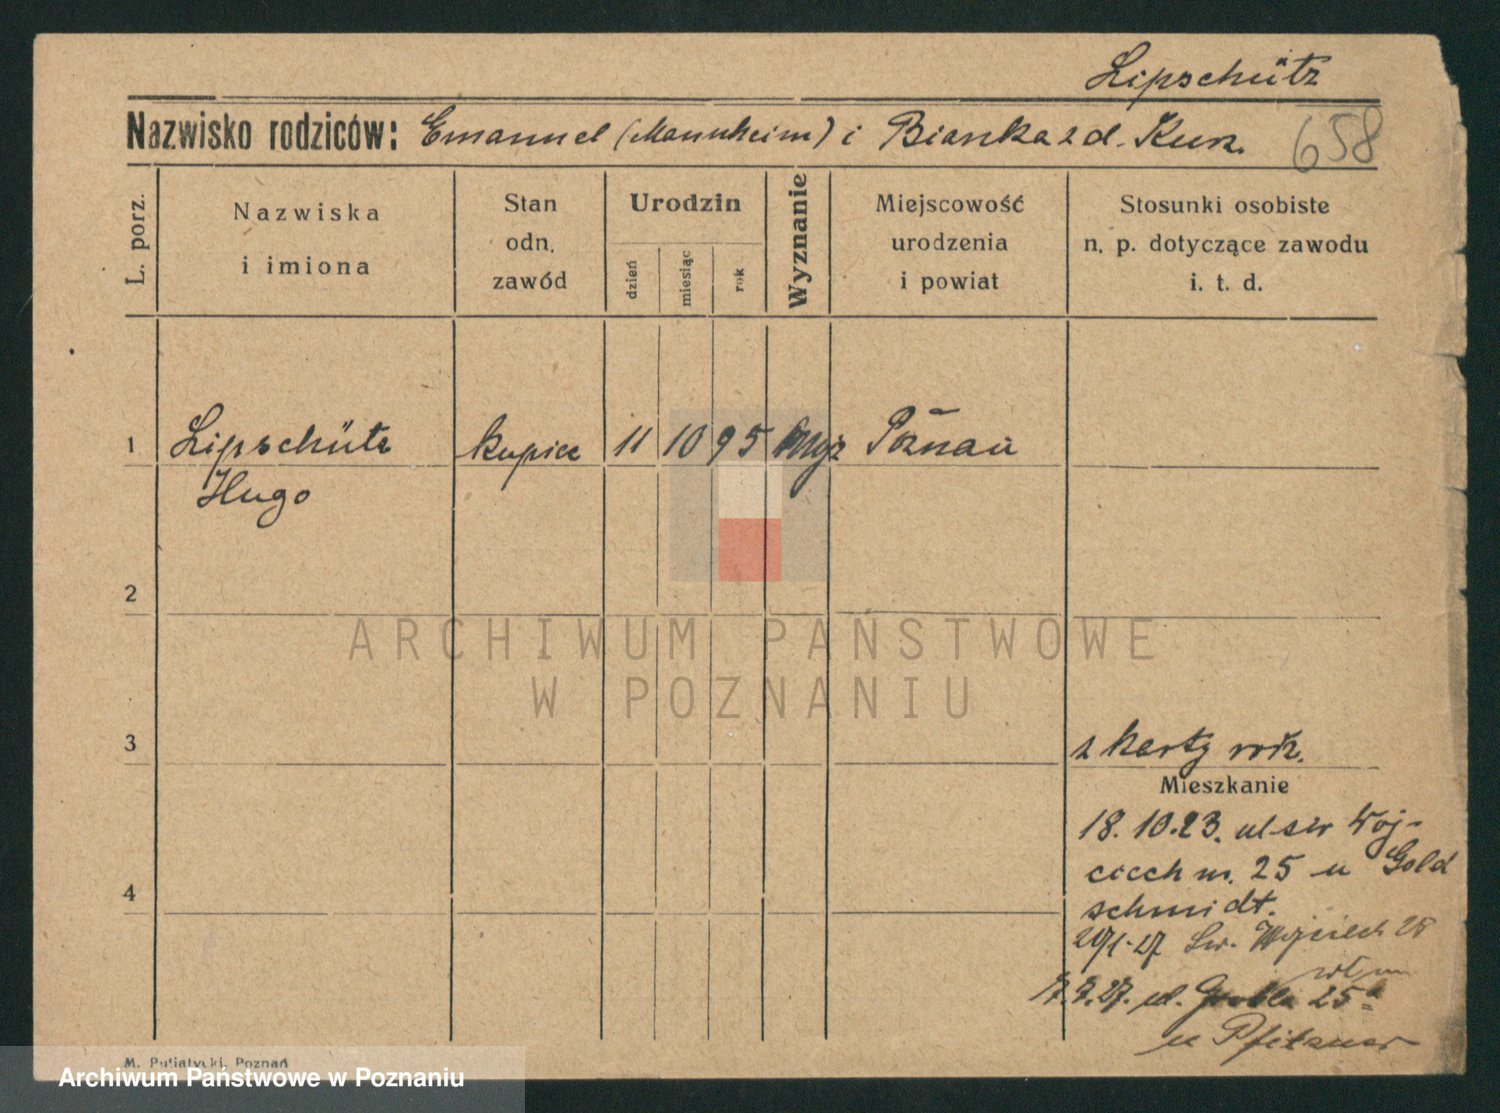 Lipschütz
Nazwisko rodziców: Emanuel (Mannheim) i Bianka z d. Kurz.
658
L. porz.
Nazwiska
i imiona
Stan
odn.
zawód
Urodzin
dzień
miesiąc
rok
Wyznanie
Miejscowość
urodzenia
i powiat
Stosunki osobiste
n. p. dotyczące zawodu
i. t. d.
1 Lipschütz kupiec 11 10 95 mojż Poznań
Hugo
2
ARCHIWUM PAŃSTWOWE
W POZNANIU
3
z karty
Mieszkanie
18.10.23. ul św Woj-
ciech m. 25 u Gold
4
schmidt.
20/1-27 Św. Wojciech 25
7.7.27. ul. Grobla 25a
u Pfitzner
M. Putiatycki, Poznań
Archiwum Państwowe w Poznaniu